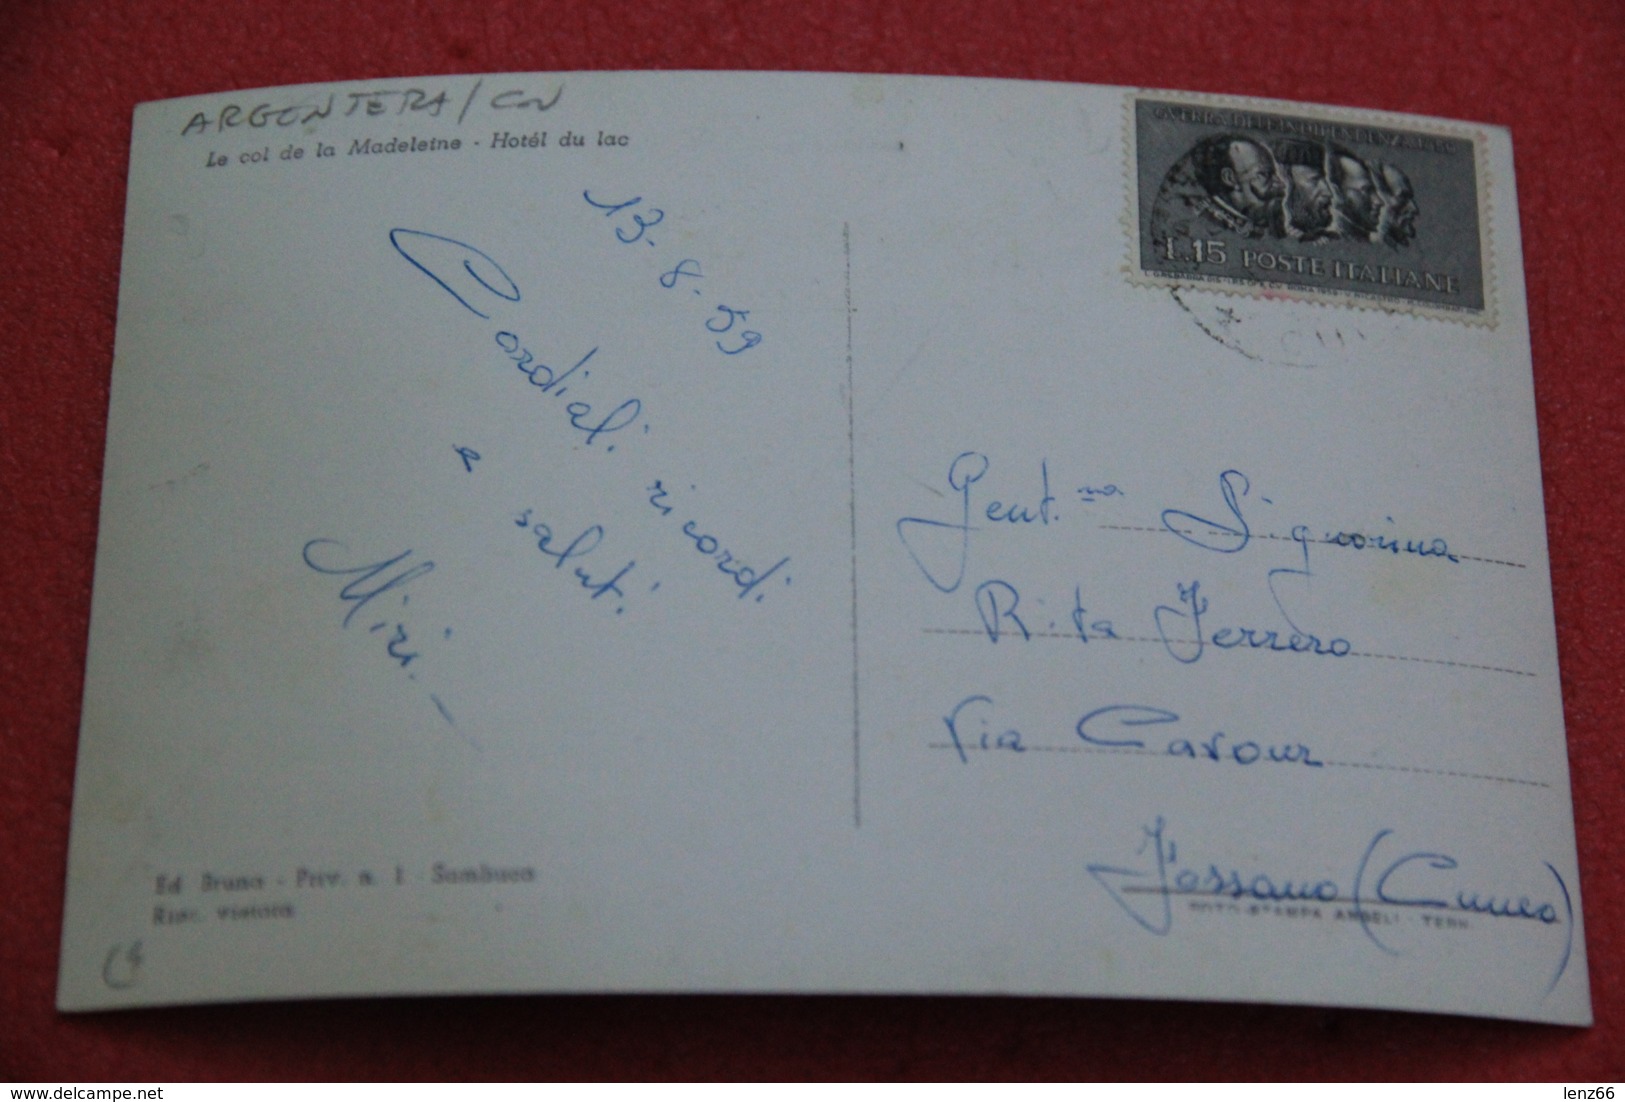 ARGENTERA / CN
Le col de la Madeleine - Hotél du lac
13-8-59
Cordiali ricordi
e saluti
Miri
Ed Bruna - Priv. n. 1 - Sambuco
Ripr. vietata
L.15 POSTE ITALIANE
Gent.ma Signorina
Rita Ferrero
Via Cavour
Fossano (Cuneo)
FOTO-STAMPA ANGELI - TERNI
delcampe.net
lenz66